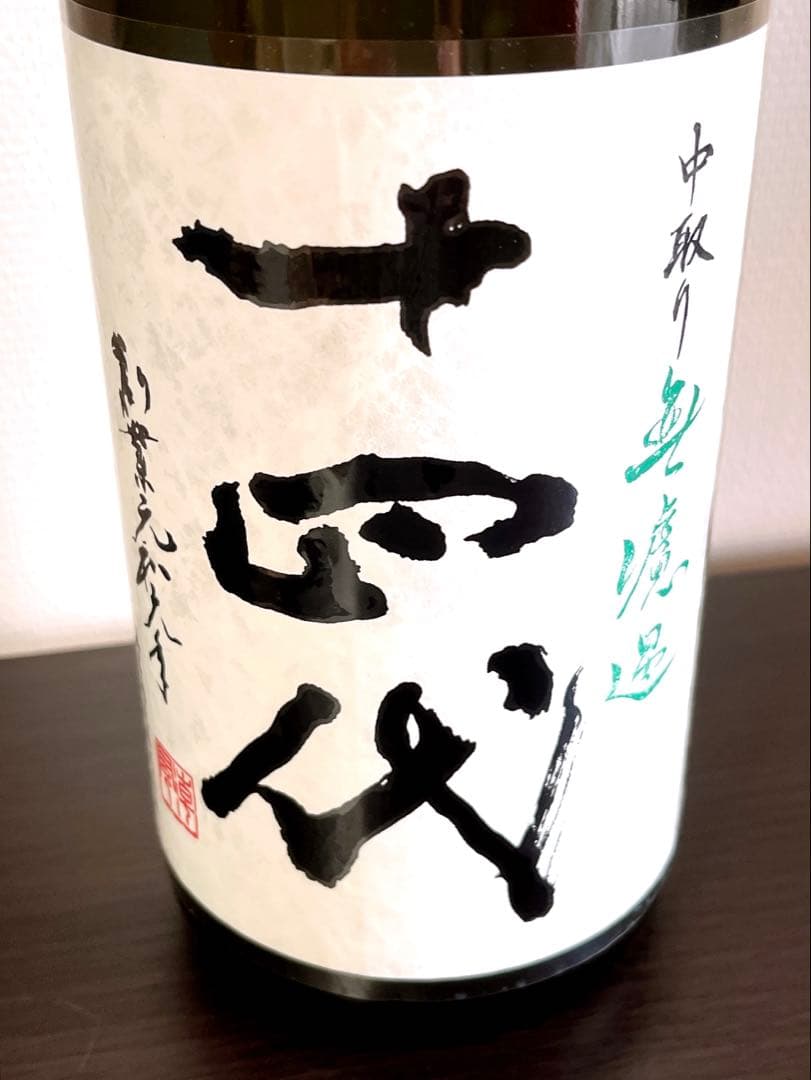 中取り
無濾過
十四代
創業元和元年